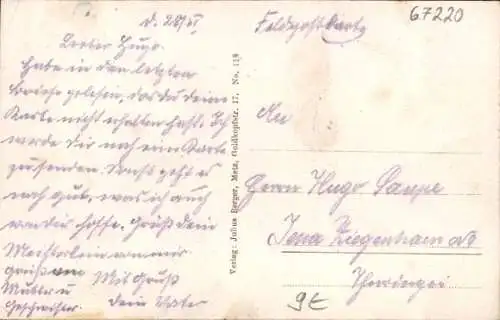 d. 28/VI
Lieber Hugo.
Habe in den letzten
Briefe gelesen, das du deine
Karte nicht erhalten hast. Ich
werde dir noch ein Karte
zusenden. Sonst geht es
noch gut, was ich auch
von dir hoffe. Grüß dein
von mir
grüß Mit Gruß
Mutter u Dein Vater
Geschwister.
Verlag: Julius Berger, Metz, Goldkopfstr. 17. No. 118
Feldpostkarte
67220
An
Herrn Hugo Saupe
Jena Ziegenhain
Thüringen
9t